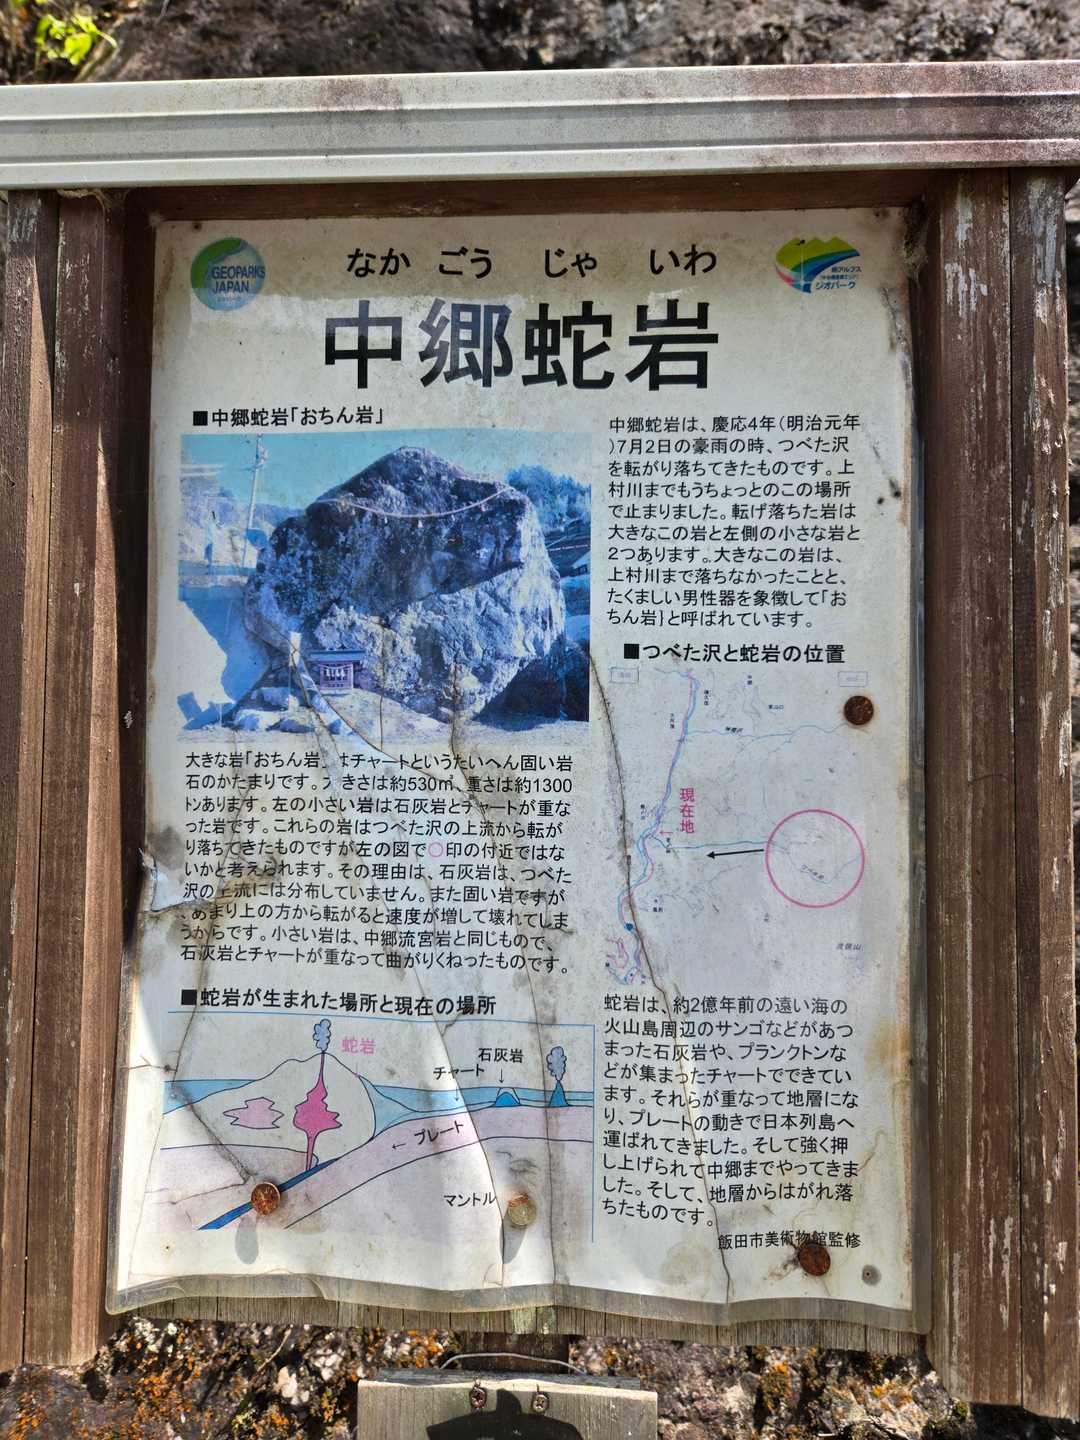 GEOPARKS
JAPAN
南アルプス
ジオパーク
なか ごう じゃ いわ
中郷蛇岩
■中郷蛇岩「おちん岩」
中郷蛇岩は、慶応4年(明治元年
)7月2日の豪雨の時、つべた沢
を転がり落ちてきたものです。上
村川までもうちょっとのこの場所
で止まりました。転げ落ちた岩は
大きなこの岩と左側の小さな岩と
2つあります。大きなこの岩は、
上村川まで落ちなかったことと、
たくましい男性器を象徴して「お
ちん岩}と呼ばれています。
大きな岩「おちん岩」はチャートというたいへん固い岩
石のかたまりです。大きさは約530㎥、重さは約1300
トンあります。左の小さい岩は石灰岩とチャートが重な
った岩です。これらの岩はつべた沢の上流から転が
り落ちてきたものですが左の図で○印の付近ではな
いかと考えられます。その理由は、石灰岩は、つべた
沢の上流には分布していません。また固い岩ですが
、あまり上の方から転がると速度が増して壊れてしま
うからです。小さい岩は、中郷流宮岩と同じもので、
石灰岩とチャートが重なって曲がりくねったものです。
■つべた沢と蛇岩の位置
現在地
■蛇岩が生まれた場所と現在の場所
蛇岩
石灰岩
チャート
← プレート
マントル
蛇岩は、約2億年前の遠い海の
火山島周辺のサンゴなどがあつ
まった石灰岩や、プランクトンな
どが集まったチャートでできてい
ます。それらが重なって地層にな
り、プレートの動きで日本列島へ
運ばれてきました。そして強く押
し上げられて中郷までやってきま
した。そして、地層からはがれ落
ちたものです。
飯田市美術物館監修